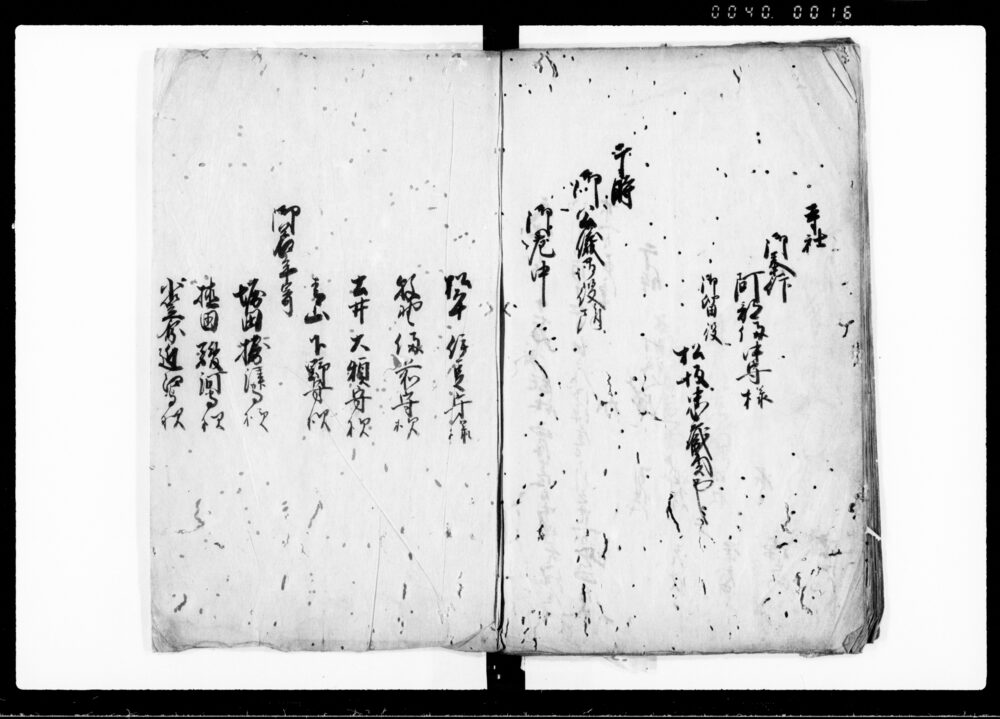 0040 0016
寺社
御奉行
阿部備中守様
御留役
松坂忠蔵
于時
御公儀御役附
御老中
松平伊豆守様
牧野備前守様
土井大炊頭守様
青山下野守様
御若年寄
堀田摂津守様
植村駿河守様
小笠原近江守様